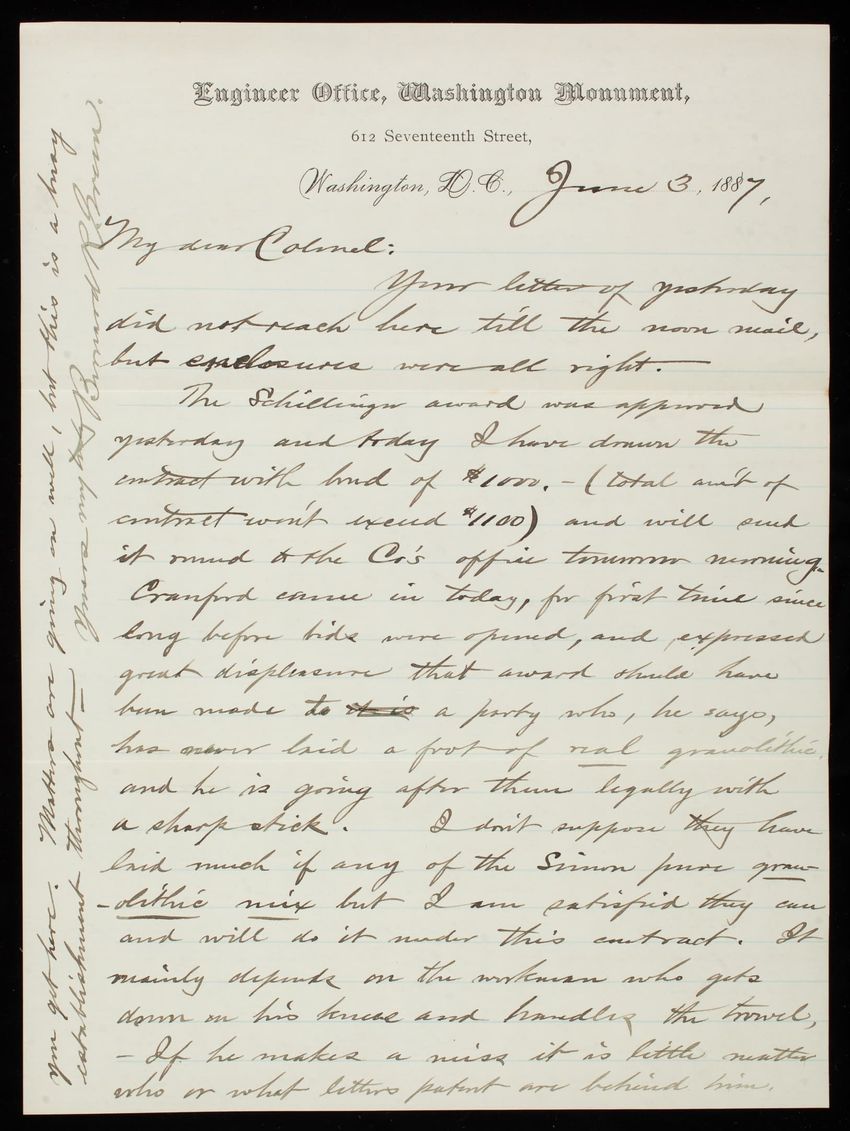 Engineer Office, Washington Monument,
612 Seventeenth Street,
Washington, D.C., June 3, 1887,
My dear Colonel:
Your letter of yesterday
did not reach here till the noon mail,
but enclosures were all right.
The Schillinger award was approved
yesterday and today I have drawn the
contract with bond of $1000. - (total am't of
contract won't exceed $1100) and will send
it round to the Co's office tomorrow morning.
Cranford came in today, for first time since
long before bids were opened, and expressed
great displeasure that award should have
been made to it is a party who, he says,
has never laid a foot of real granolithic.
and he is going after them legally with
a sharp stick. I don't suppose they have
laid much if any of the Simon pure gran-
-olithic mix but I am satisfied they can
and will do it under this contract. It
mainly depends on the workman who gets
down on his knees and handles the trowel,
- If he makes a miss it is little matter
who or what letters patent are behind him.
you get here. Matters are going on well, but this is a busy
establishment throughout -
Yours my truly Bernard R. Green.